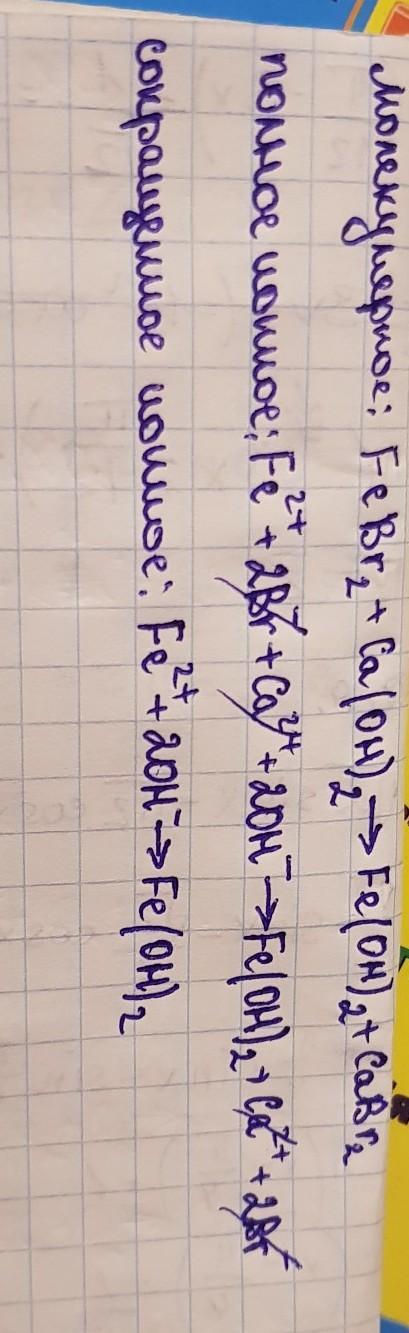 молекулярное: FeBr₂ + Ca(OH)₂ → Fe(OH)₂ + CaBr₂
полное ионное: Fe²⁺ + 2Br⁻ + Ca²⁺ + 2OH⁻ → Fe(OH)₂ + Ca²⁺ + 2Br⁻
сокращенное ионное: Fe²⁺ + 2OH⁻ → Fe(OH)₂